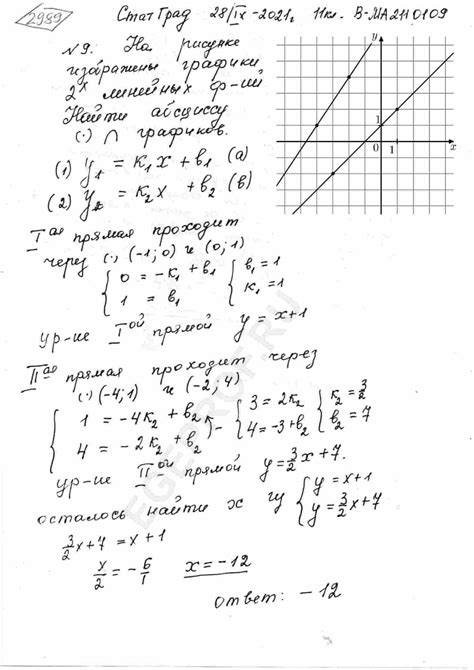 2989
СтатГрад 28/IX-2021г. 11кл. В-МА2110109
№9. На рисунке
изображены графики
2х линейных ф-ий
Найти абсциссу
(·) ∩ графиков.
(1) y₁ = к₁x + в₁ (а)
(2) y₂ = к₂x + в₂ (в)
y
1
0 1 x
Iая прямая проходит
через (·) (-1; 0) и (0; 1)
{ 0 = -к₁ + в₁ { в₁ = 1
1 = в₁ к₁ = 1
ур-ие Iой прямой y = x+1
IIая прямая проходит через
(·) (-4; 1) и (-2; 4)
{ 1 = -4к₂ + в₂ - { 3 = 2к₂ { к₂ = 3/2
4 = -2к₂ + в₂ 4 = -3+в₂ в₂ = 7
ур-ие IIой прямой y = 3/2x + 7.
осталось найти x из { y = x+1
y = 3/2x + 7
3/2x + 7 = x + 1
x/2 = - 6/1 x = -12
ответ: -12
EGEPROF.RU